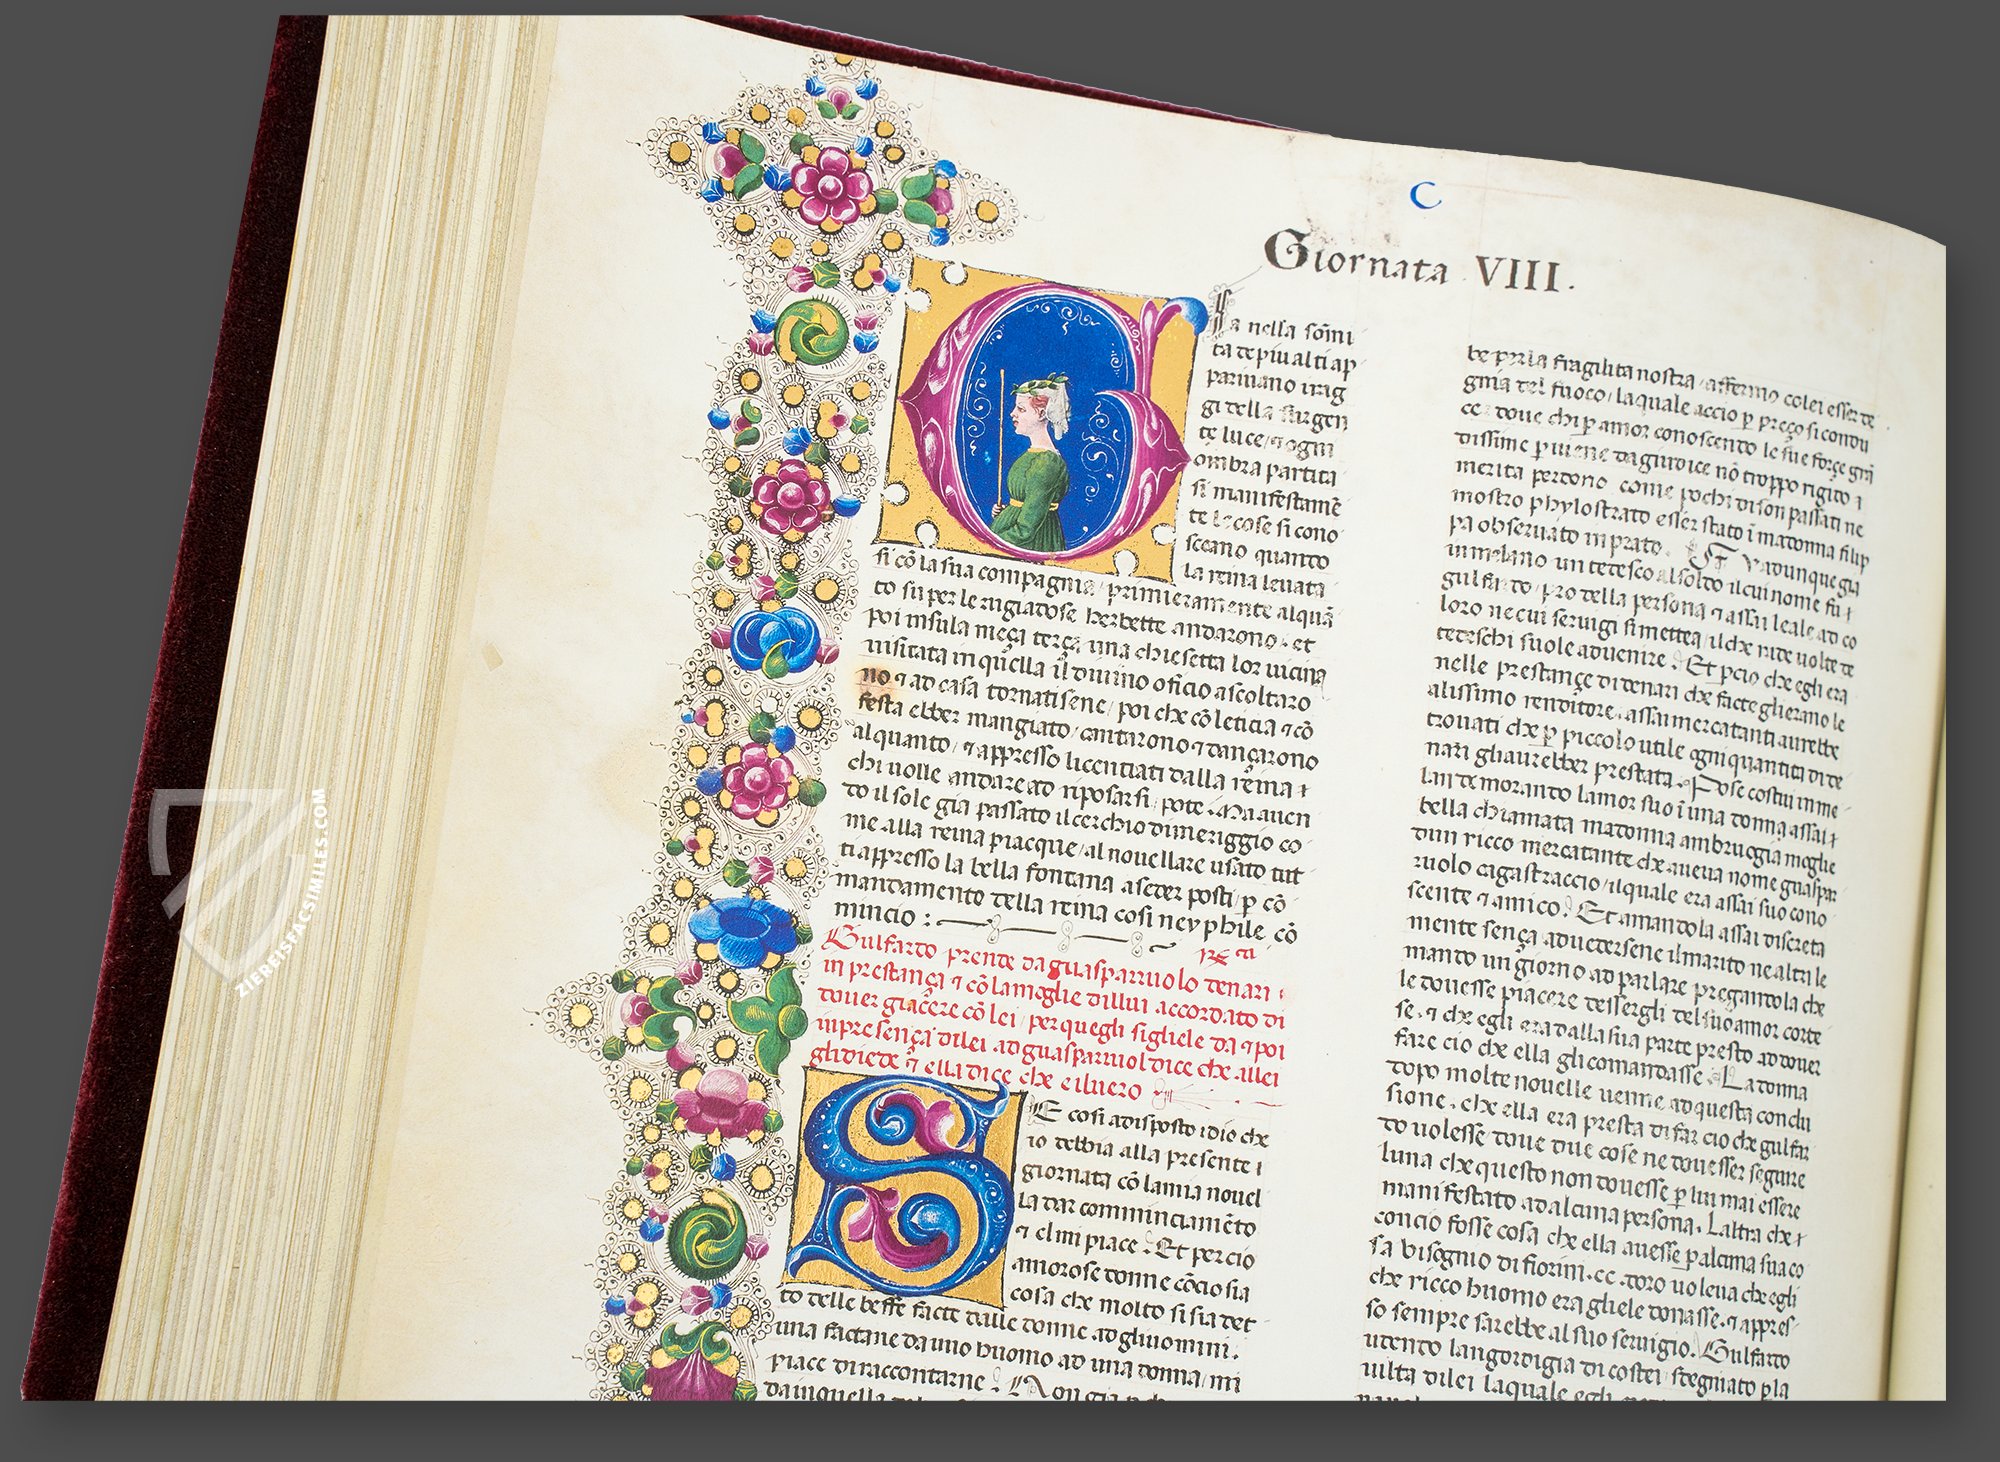 C
Giornata VIII.
Gia nella sõmi
ta de piu alti ap
parivano i rag
gi della surgen
te luce, ⁊ ogni
ombra partita
si manifestamẽ
te le cose si cono
sceano quanto
la reina levata
si cõ la sua compagnia, primieramente alquã
to su per le rugiadose herbette andarono, et
poi insula meça terça una chiesetta lor vicina
visitata in quella il divino oficio ascoltaro
no ⁊ ad casa tornatisene, poi che cõ leticia ⁊ cõ
festa ebber mangiato, cantarono ⁊ dançarono
alquanto, ⁊ appresso licentiati dalla reina
chi volle andare ad riposarsi, pote. Ma aven
do il sole gia passato il cerchio di meriggio co
me alla reina piacque, al novellare usato tut
ti appresso la bella fontana a seder posti, ꝑ cõ
mandamento della reina cosi neyphile cõ
mincio:
Gulfardo prende da guasparruolo denari
in prestança ⁊ cõ la moglie di llui accordato di
dover giacere cõ lei, per quegli sigliele da ⁊ poi
in presença di lei ad guasparruol dice che allei
gli diede ⁊ ella dice che e il vero
SE cosi a disposto idio che
io debbia alla presente
giornata cõ la mia novel
la dar comminciamẽto
⁊ el mi piace. Et per cio
amorose donne cõcio sia
cosa che molto si sia det
to delle beffe facte dalle donne ad gli uomini,
una factane da uno huomo ad una donna, mi
piace di raccontarne. Non gia
be ꝑ la fragilita nostra, affermo colei esser de
gna del fuoco, la quale accio ꝑ preço si condu
ce: dove chi ꝑ amor conoscendo le sue forçe grã
dissime ꝑ viene da giudice nõ troppo rigido
merita perdono come pochi di son passati ne
mostro phylostrato esser stato ĩ madonna filip
pa observato in prato. Fu adunque gia
in melano un tedesco al soldo il cui nome fu
gulfardo, pro della persona ⁊ assai leale ad co
loro ne cui servigi si mettea, il che rade volte de
tedeschi suole advenire. Et ꝑcio che egli era
nelle prestançe di denari che facte gli erano le
alissimo renditore, assai mercatanti avrebbe
trovati che ꝑ piccolo utile ogni quantita di de
nari gli avrebber prestata. Pose costui in me
lan dimorando lamor suo ĩ una donna assai
bella chiamata madonna ambruogia moglie
dun ricco mercatante che aveva nome guaspar
ruolo cagastraccio, il quale era assai suo cono
scente ⁊ amico. Et amandola assai discreta
mente sença advedersene il marito ne altri le
mando un giorno ad parlare pregandola che
le dovesse piacere dessergli del suo amor corte
se. ⁊ che egli era dalla sua parte presto ad dover
fare cio che ella gli comandasse. La donna
dopo molte novelle venne ad questa conclu
sione, che ella era presta di far cio che gulfar
do volesse dove due cose ne dovesser seguire
luna che questo non dovesse ꝑ lui mai essere
manifestato ad alcuna persona. Laltra che
concio fosse cosa che ella avesse ꝑ alcuna sua co
sa bisogno di fiorini .cc. doro voleva che egli
che ricco huomo era gliele donasse. ⁊ appres
so sempre sarebbe al suo servigio. Gulfardo
udendo langordigia di costei, sdegnato ꝑ la
vilta di lei la quale egli
ZIEREISFACSIMILES.COM